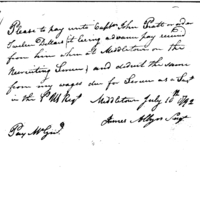 Please to pay unto Captn John Pratt or order
Twelve Dollars it being advance pay received
from him when at Middletown on the
Recruiting Service; and deduct the same
from my wages due for Service as a Sergt
in the 1st US Regt Middletown July 10th 1792
James Sergt
Pay Mr Genl